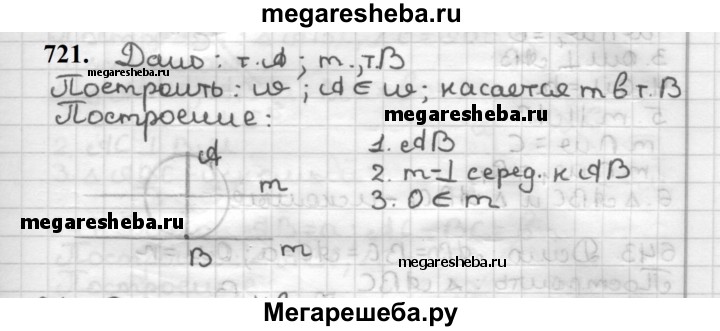 megaresheba.ru
721. Дано: т. A; m, т. B
megaresheba.ru
Построить: w; A ∈ w; касается m в т. B
Построение:
A
1. AB
m
2. m-⊥ серед. к AB
megaresheba.ru
3. O ∈ m
B
m
megaresheba.ru
Мегарешеба.ру